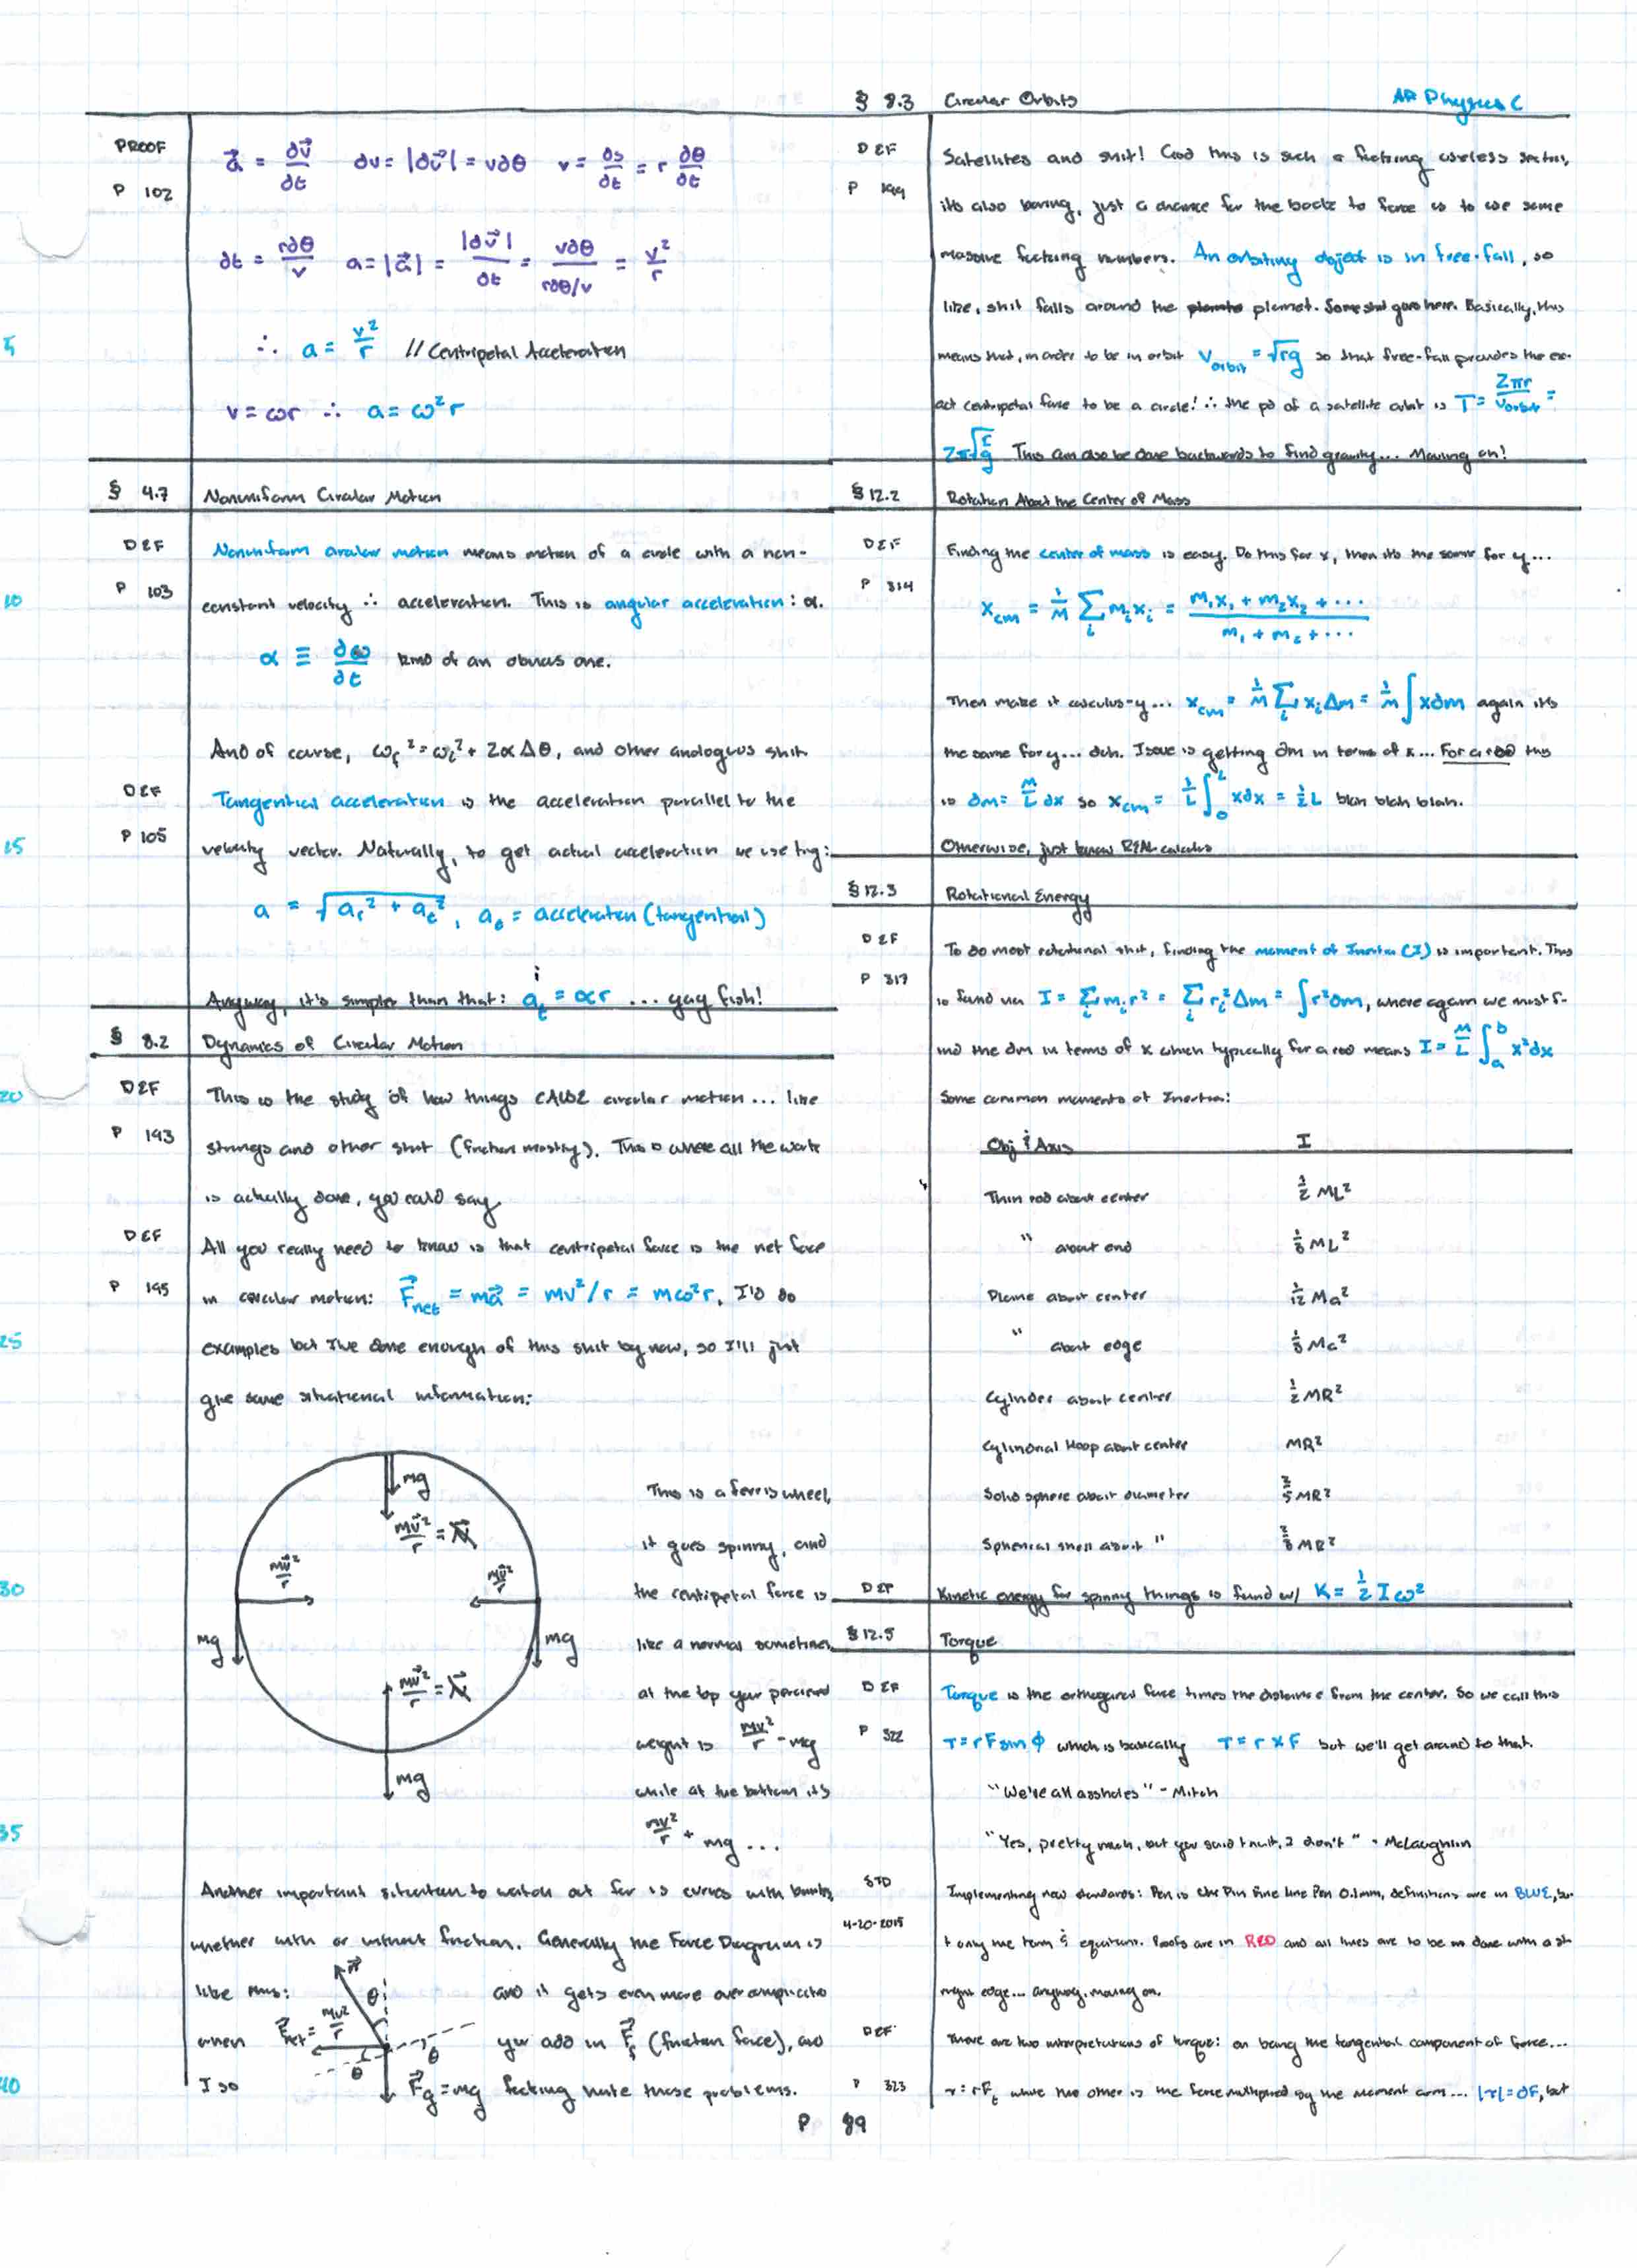 § 8.3 Circular Orbits AP Physics C
PROOF
P 102
a⃗ = ∂v⃗/∂t ∂v = |∂v⃗| = v∂θ v = ∂s/∂t = r ∂θ/∂t
∂t = r∂θ/v a = |a⃗| = |∂v⃗|/∂t = v∂θ/(r∂θ/v) = v²/r
5
∴ a = v²/r // Centripetal Acceleration
v = ωr ∴ a = ω²r
§ 4.7 Nonuniform Circular Motion
DEF
P 103
Nonuniform circular motion means motion of a circle with a non-
10
constant velocity ∴ acceleration. This is angular acceleration: α.
α ≡ ∂ω/∂t kind of an obvious one.
And of course, ωf² = ωi² + 2αΔθ, and other analogous shit.
DEF
P 105
Tangential acceleration is the acceleration parallel to the
15
velocity vector. Naturally, to get actual acceleration we use trig:
a = √(ar² + at²), at = acceleration (tangential)
Anyway, it's simpler than that: at = αr ... yay fish!
§ 8.2 Dynamics of Circular Motion
20
DEF
P 193
This is the study of how things CAUSE circular motion... like
strings and other shit (friction mostly). This is where all the work
is actually done, you could say.
DEF
P 195
All you really need to know is that centripetal force is the net force
in circular motion: F⃗net = ma⃗ = mv²/r = mω²r. I'd do
25
examples but I've done enough of this shit by now, so I'll just
give some situational information:
mg
mv⃗²/r = N⃗
mv⃗²/r
mv⃗²/r
mg
mg
mv⃗²/r = N⃗
mg
This is a ferris wheel,
it goes spinny, and
30
the centripetal force is
like a normal sometimes
at the top your percieved
weight is mv²/r - mg
while at the bottom it's
35
mv²/r + mg ...
Another important situation to watch out for is curves with banks,
whether with or without friction. Generally the Force Diagram is
like this: and it gets even more overcomplicated
when you add in F⃗f (friction force), and
40
I so fucking hate those problems.
n⃗
θ
F⃗net = mv²/r
θ
θ
F⃗g = mg
DEF
P 199
Satellites and shit! God this is such a fucking useless section,
its also boring, just a chance for the book to force us to use some
massive fucking numbers. An orbiting object is in free-fall, so
like, shit falls around the planet. Some shit goes here. Basically, this
means that, in order to be in orbit Vorbit = √rg so that free-fall provides the ex-
act centripetal force to be a circle! ∴ the pd of a satellite orbit is T = 2πr/Vorbit =
2π√(r/g) This can also be done backwards to find gravity... Moving on!
§ 12.2 Rotation About the Center of Mass
DEF
P 314
Finding the center of mass is easy. Do this for x, then its the same for y...
xcm = 1/M Σi mixi = (m₁x₁ + m₂x₂ + ···)/(m₁ + m₂ + ···)
Then make it calculus-y... xcm = 1/M Σi xiΔm = 1/M ∫x∂m again its
the same for y... duh. Issue is getting ∂m in terms of x... For a rod this
is ∂m = M/L ∂x so xcm = 1/L ∫₀ᴸ x∂x = ½L blah blah blah.
Otherwise, just know REAL calculus
§ 12.3 Rotational Energy
DEF
P 317
To do most rotational shit, finding the moment of Inertia (I) is important. This
is found via I = Σi mir² = Σi ri²Δm = ∫r²∂m, where again we must f-
ind the ∂m in terms of x which typically for a rod means I = M/L ∫ₐᵇ x²∂x
Some common moments of Inertia:
Obj & Axis I
Thin rod about center ½ ML²
" about end ⅓ ML²
Plane about center 1/12 Ma²
" about edge ⅓ Ma²
Cylinder about center ½ MR²
Cylindrical Hoop about center MR²
Solid sphere about diameter ⅖ MR²
Spherical shell about " ⅔ MR²
DEF Kinetic energy for spinny things is found w/ K = ½ I ω²
§ 12.5 Torque
DEF
P 322
Torque is the orthogonal force times the distance from the center. So we call this
τ = rF sin ϕ which is basically τ = r × F but we'll get around to that.
"We're all assholes" - Mitch
"Yes, pretty much, but you said I don't" - McLaughlin
STD
4-20-2015
Implementing new standards: Pen is the Pin Fine line Pen 0.1mm, definitions are in BLUE, bu-
t only the term & equation. Proofs are in RED and all lines are to be done with a st-
raight edge... anyway, moving on.
DEF
P 323
There are two interpretations of torque: on being the tangential component of force...
τ = rFt while the other is the force multiplied by the moment arm... |τ| = ∂F, but
P 89